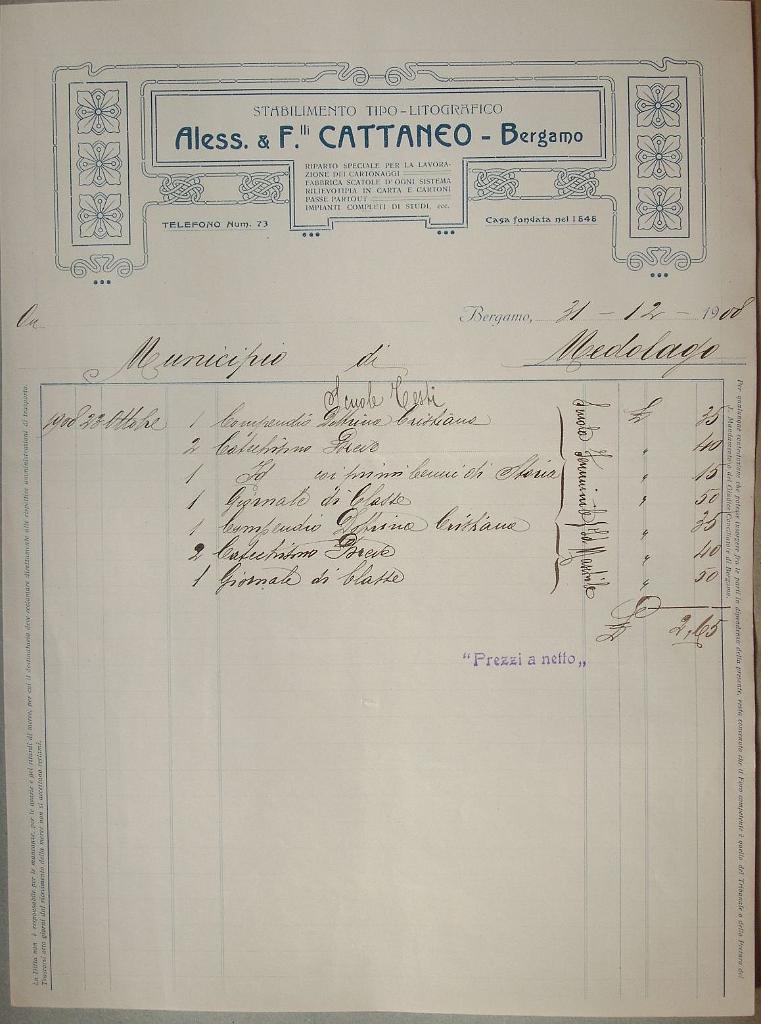 STABILIMENTO TIPO-LITOGRAFICO
Aless. & F.lli CATTANEO - Bergamo
RIPARTO SPECIALE PER LA LAVORA-
ZIONE DEI CARTONAGGI
FABBRICA SCATOLE D'OGNI SISTEMA
RILIEVOTIPIA IN CARTA E CARTONI
PASSE PARTOUT
IMPIANTI COMPLETI DI STUDI, ecc.
TELEFONO Num. 73
Casa fondata nel 1848
Bergamo, 31 - 12 - 1908
Municipio di Medolago
Scuole
1908 23 Ottobre 1 Compendio Dottrina Cristiana £ 35
2 Catechismo Breve " 40
1 Id coi primi Cenni di Storia " 15
1 Giornale di Classe " 50
1 Compendio Dottrina Cristiana " 35
2 Catechismo Breve " 40
1 Giornale di Classe " 50
Scuola Femminile
Id Maschile
£ 2,65
"Prezzi a netto"
La Ditta non è responsabile per le mancanze, per le avarie e pei ritardi di merce, per cui il destinatario deve reclamare direttamente alle rispettive amministrazioni di trasporto.
Trascorsi otto giorni dal ricevimento della merce non si accettano reclami.
Per qualunque contestazione che potesse insorgere fra le parti in dipendenza della presente, resta convenuto che il Foro competente è quello del Tribunale o della Pretura del
I. Mandamento o del Giudice Conciliatore di Bergamo.